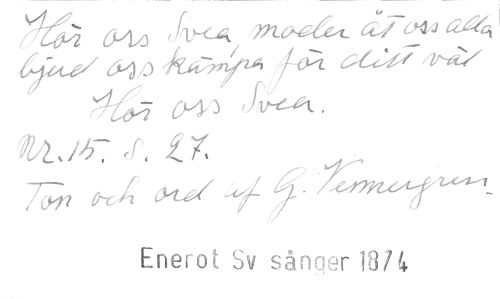 Hör oss Svea, moder åt oss alla
bjud oss kämpa för ditt väl
Hör oss Svea.
Nr. 15. s. 27.
Ton och ord af G. Vennergren
Enerot Sv sånger 1874